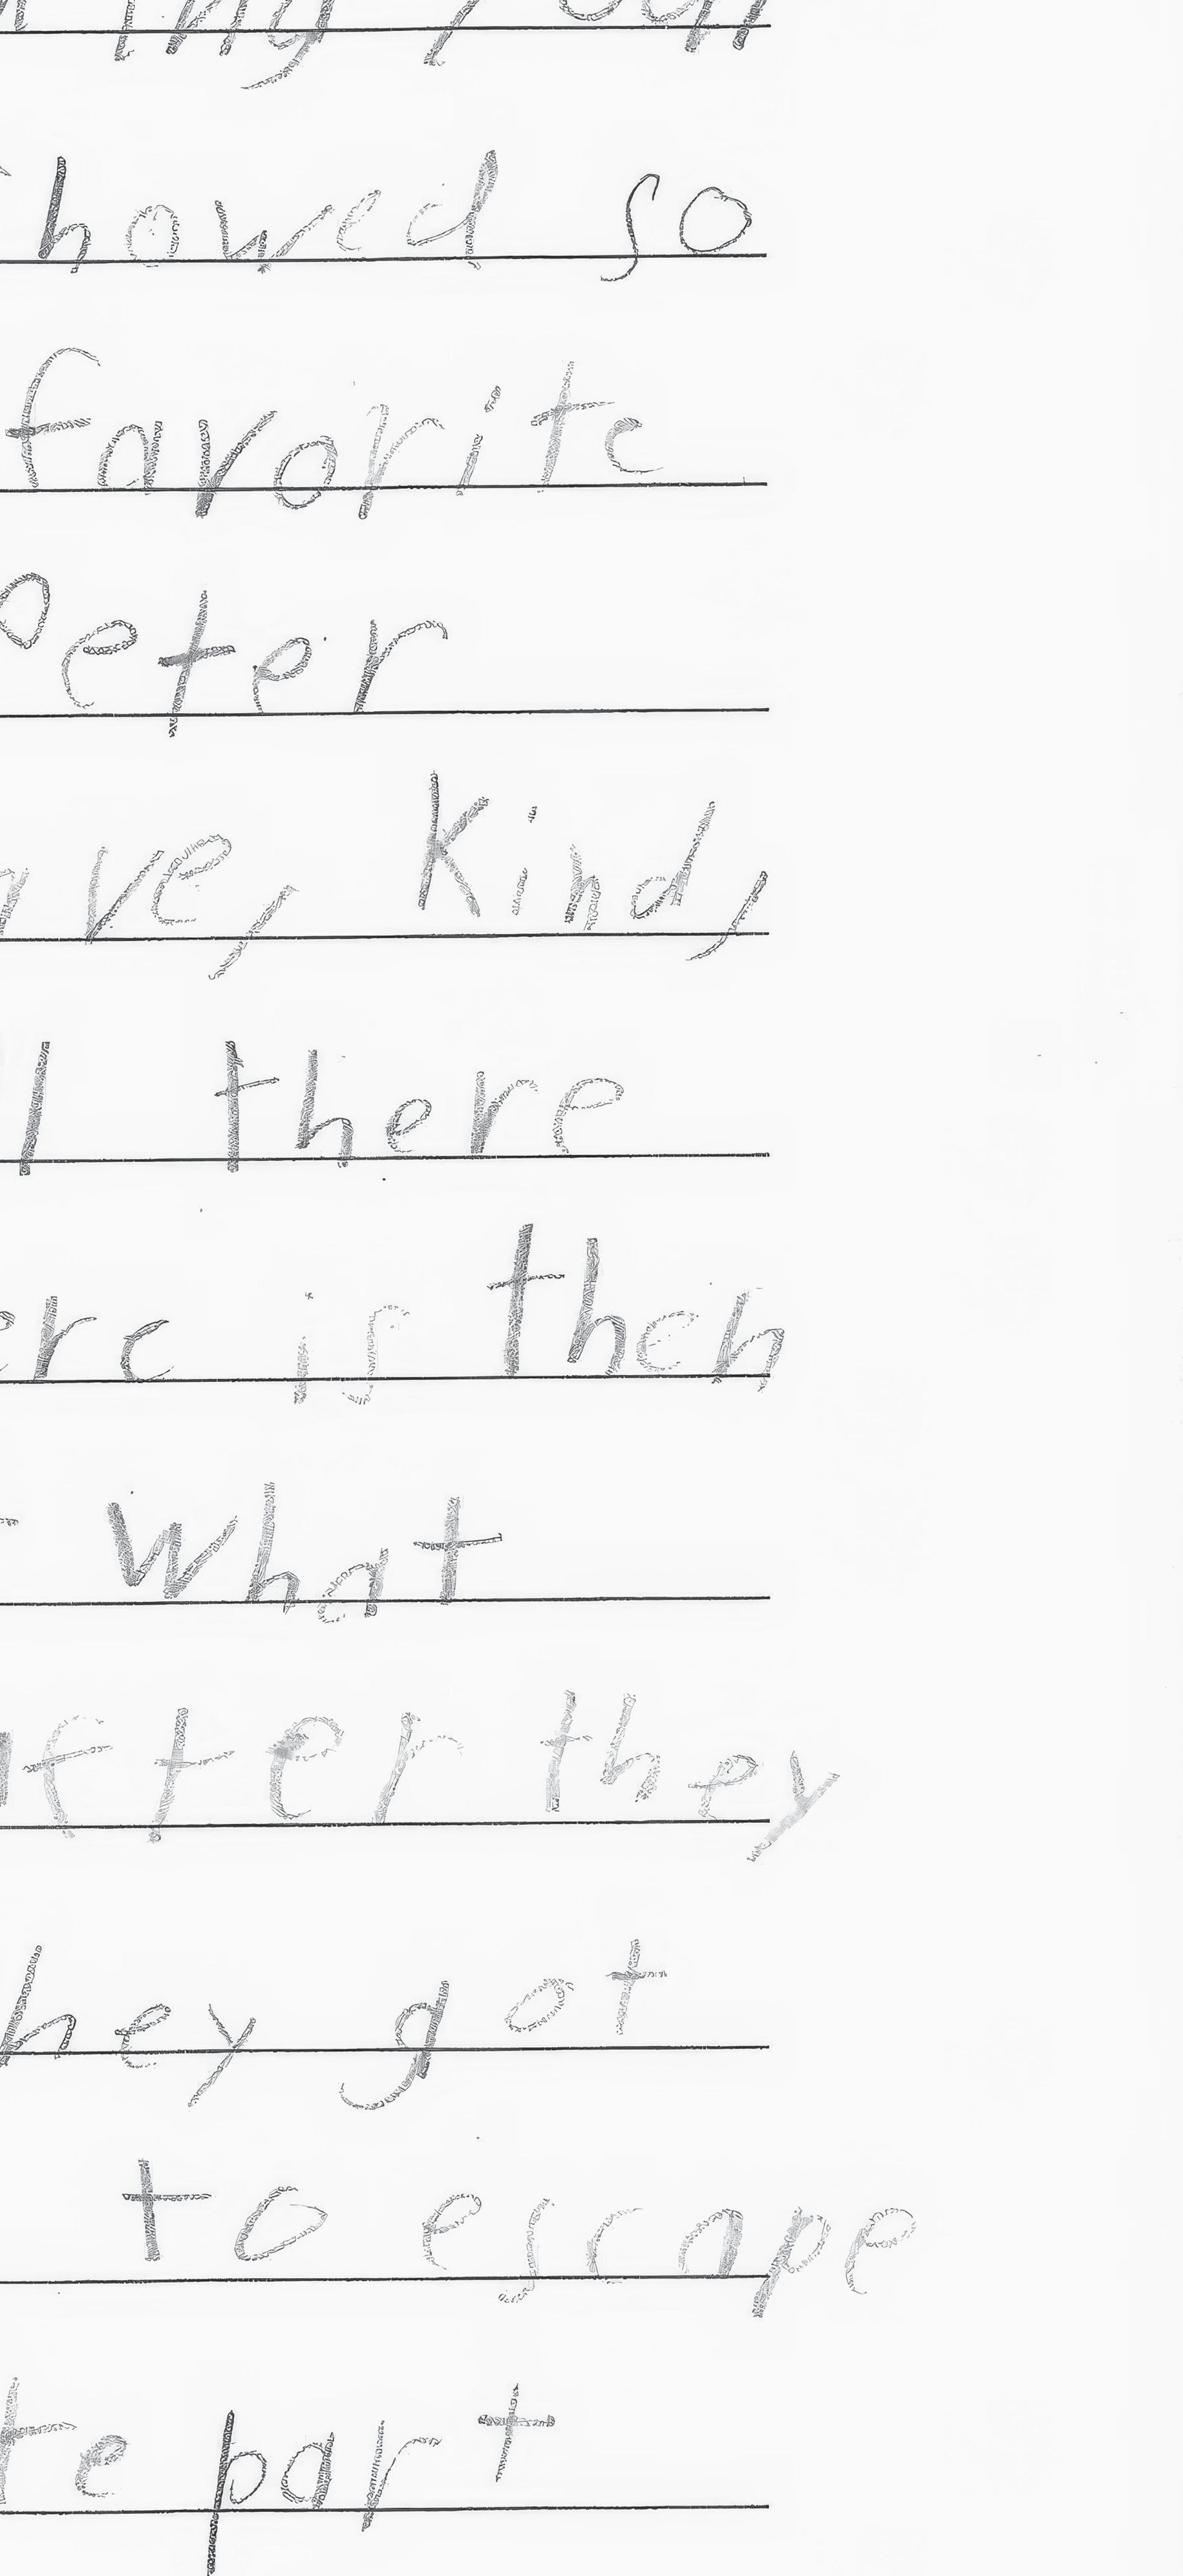 howed so
favorite
Peter
ve, Kind,
there
ere is then
what
after they
hey got
to escape
te part